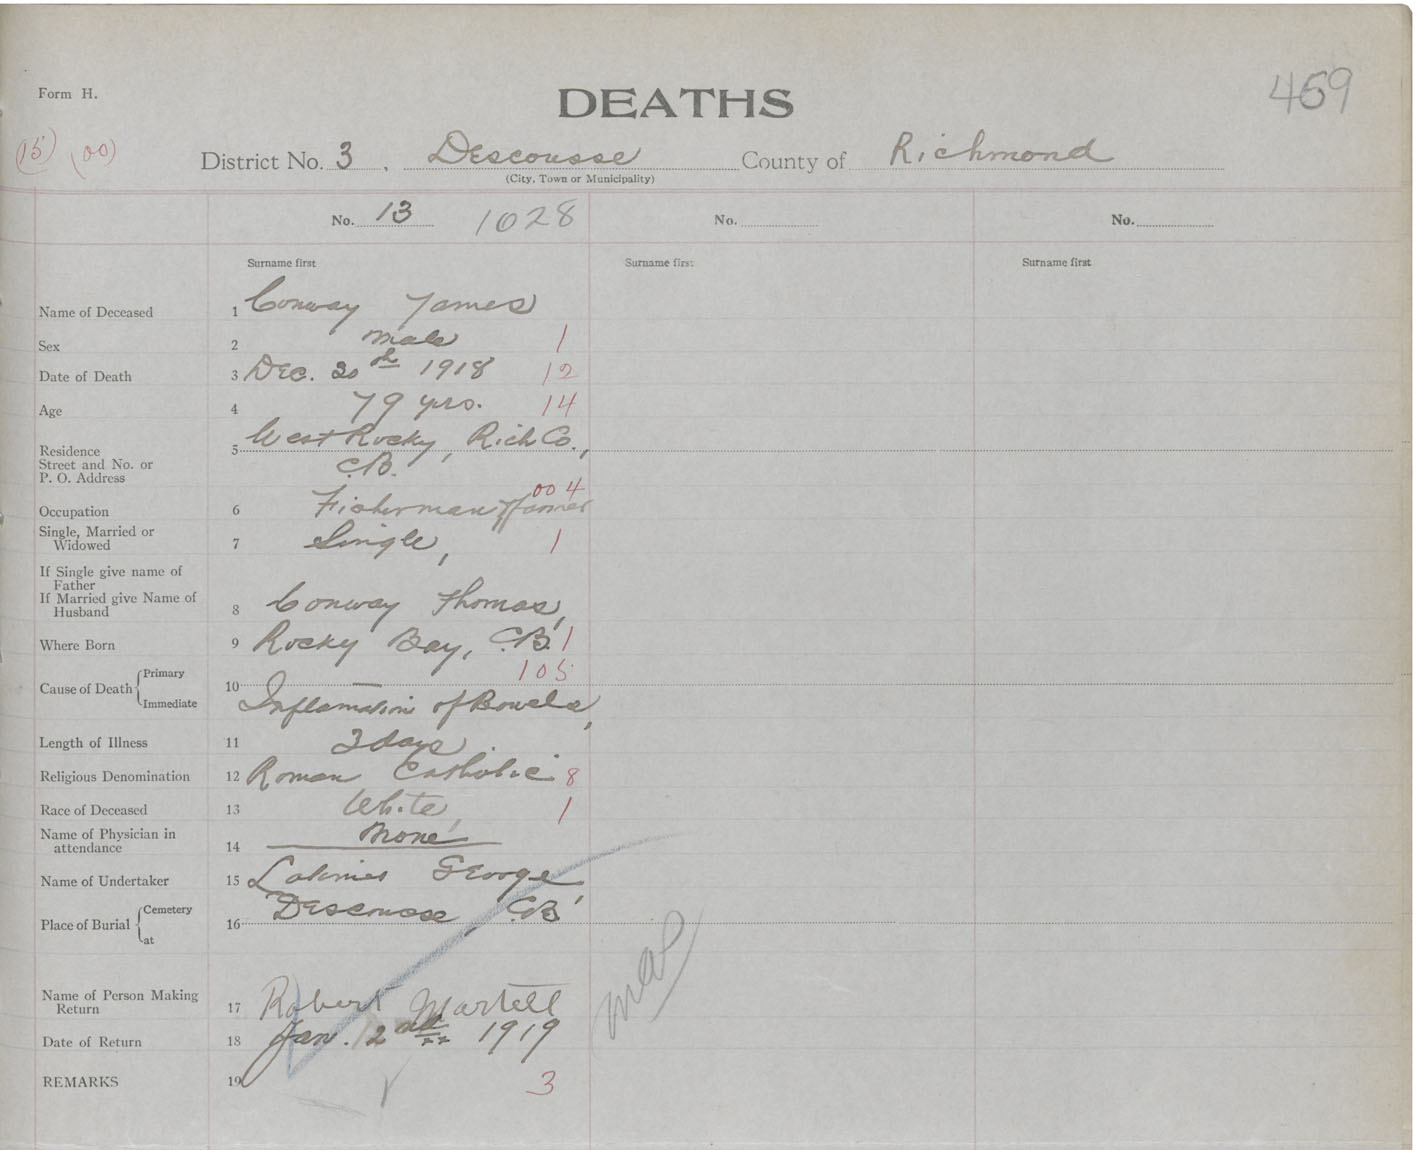 Form H.
DEATHS
459
(15) (00)
District No. 3, Descousse County of Richmond
(City, Town or Municipality)
No. 13 1028 No. No.
Surname first Surname first Surname first
Name of Deceased 1 Conway James
Sex 2 male 1
Date of Death 3 Dec. 20th 1918 12
Age 4 79 yrs. 14
Residence
Street and No. or
P. O. Address
5 West Rocky, Rich Co.,
C.B.
00 4
Occupation 6 Fisherman & farmer
Single, Married or
Widowed
7 Single, 1
If Single give name of
Father
If Married give Name of
Husband
8 Conway Thomas,
Where Born 9 Rocky Bay, C.B. 1
105
Cause of Death Primary
Immediate
10 Inflamation of Bowels,
Length of Illness 11 3 days
Religious Denomination 12 Roman Catholic 8
Race of Deceased 13 White, 1
Name of Physician in
attendance
14 None
Name of Undertaker 15 George
Place of Burial Cemetery
at
16 Descousse C.B.
Name of Person Making
Return
17 Robert Martell
Date of Return 18 Jan. 2nd 1919
REMARKS 19 3